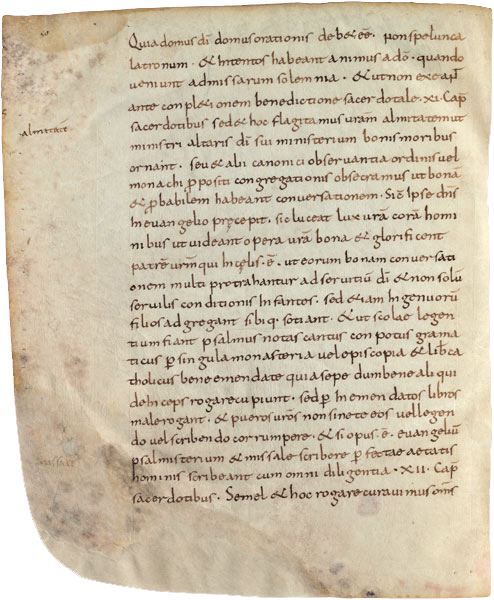 Quia domus dī domus orationis deb& eē. non spelunca
latronum. & intentos habeant animus ad dō. quando
veniunt ad missarum solemnia. & ut non exeaṅt
ante conpl&ionem benedictione sacerdotale. XI. Cap̄
sacerdotibus sed & hoc flagitamus uram almitatem ut
ministri altaris dī sui ministerium bonis moribus
ornant. seu & alii canonici observantia ordinis vel
monachi p̱positi congregationis obsecramus ut bona
& p̱babilem habeant conversationem. Sic̄ ipse dn̄s
in evangelio precepit. sic luceat lux ur̄a corā homi
nibus ut videant opera ur̄a bona & glorificent
patrē ur̄m qui in celis. ē. ut eorum bonam conversati
onem multi protrahantur ad servitiū dī & non solū
servilis conditionis infantes. sed &iam ingenuorū
filios adgregant sibiq. sotiant. & ut scolae legen
tium fiant psalmus notas cantus conpotus grama
ticus p̱ singula monasteria vel episcopia & lib̄ ca
tholicus bene emendate quia sepe dum bene aliqui
deinceps rogare cupiunt. sed p̱ inemendatos libros
male rogant. & pueros ur̄os non sinete eos vel legen
do vel scribendo corrumpere. & si opus. ē. evangeliū
psalmisterium & missale scribere p̱fectae aetatis
hominis scribeant cum omni diligentia. XII. Cap̄
sacerdotibus. Semel & hoc rogare curavimus om̄s
almitate